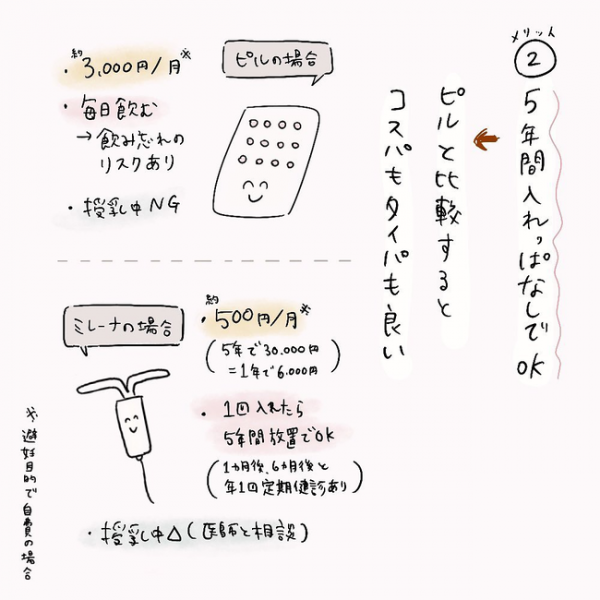 メリット
②
5年間入れっぱなしでOK
←
ピルと比較すると
コスパもタイパも良い
ピルの場合
・約3,000円/月※
・毎日飲む
→飲み忘れの
リスクあり
・授乳中NG
ミレーナの場合
・約500円/月※
(5年で30.000円
=1年で6.000円)
・1回入れたら
5年間放置でOK
(1カ月後、6カ月後と
年1回定期健診あり)
・授乳中△(医師と相談)
※避妊目的で自費の場合